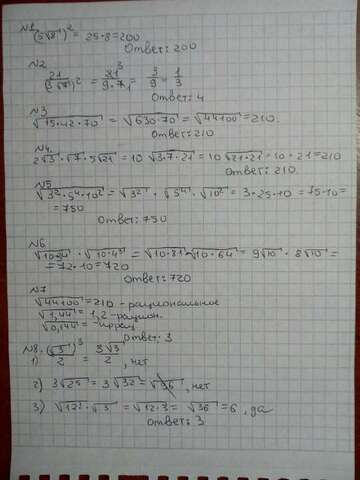 №1
(5√8)² = 25·8=200
Ответ: 200
№2
21/(3√7)² = 21³/9·7₁ = 3/9 = 1/3
Ответ: 4
№3
√15·42·70 = √630·70 = √44100 = 210.
Ответ: 210
№4.
2√3·√7·5√21 = 10 √3·7·21 = 10 √21·21 = 10·21=210
Ответ: 210.
№5
√3²·5⁴·10² = √3²·√5⁴·√10² = 3·25·10 = 75·10=
= 750
Ответ: 750
№6
√10·3⁴·√10·4³ = √10·81·√10·64 = 9√10·8√10 =
= 72·10=720
Ответ: 720
№7
√44100 = 210 - рациональное
√1,44 = 1,2 - рацион.
√0,144 = - иррац.
Ответ: 3
№8. 1) (√3)³/2 = 3√3/2, нет
2) 3√25 = 3√32 = √96, нет
3) √12·√3 = √12·3 = √36 = 6, да
Ответ: 3